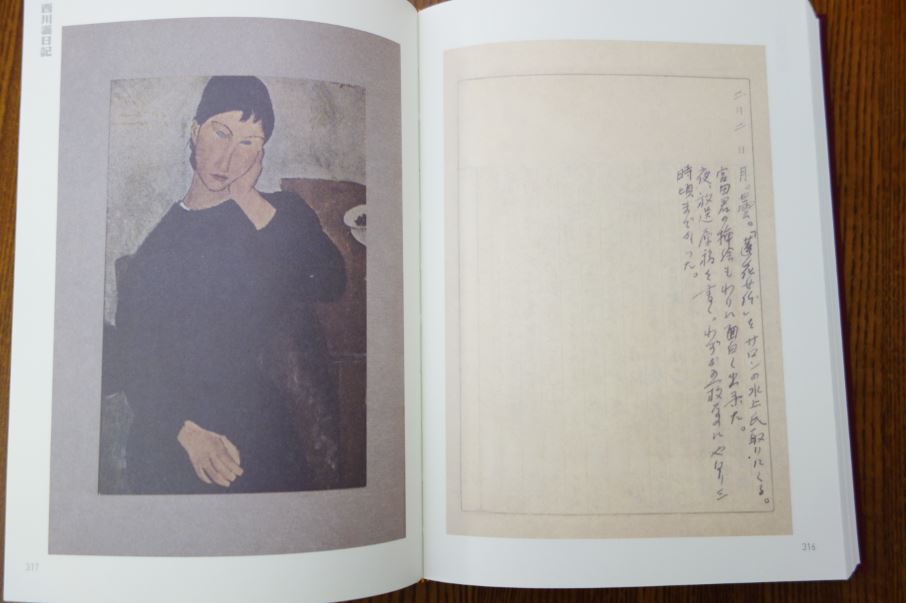 二月二日 月。曇。『蓮花女』をサロンの水上氏取りにくる。
宮田君の挿絵もわりに面白く出来た。
夜、放送原稿を書く。わずか五枚なのにやはり三
時頃までかかった。
316
西川滿日記
317